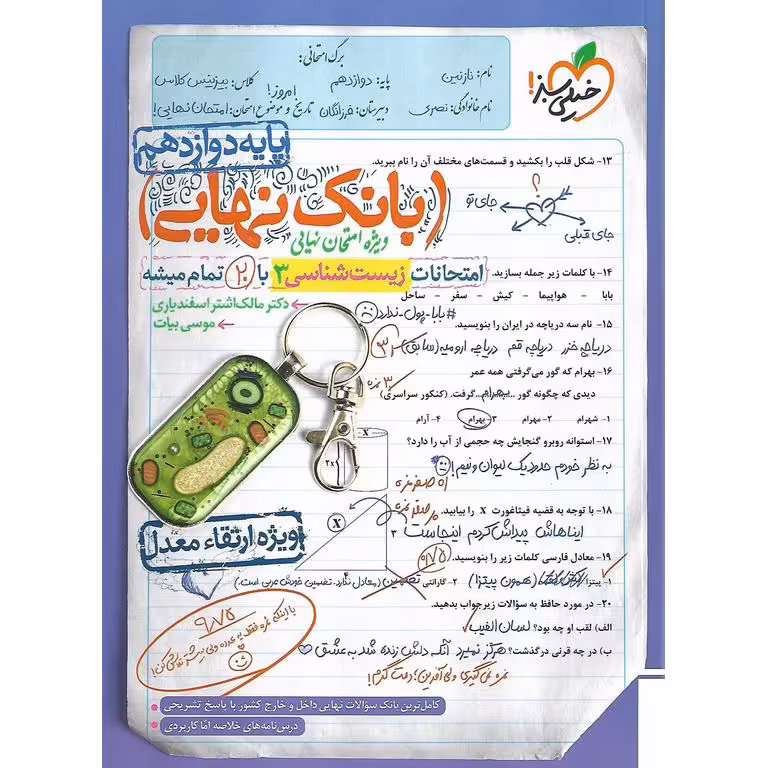 برگ امتحانی:
نام: نازنین
پایه: دوازدهم
کلاس: بیزینس کلاس
نام خانوادگی: نصری
دبیرستان: فرزانگان
تاریخ و موضوع امتحان: امتحان نهایی!
امروز!
خیلی سبز!
پایه دوازدهم
(بانک نهایی)
ویژه امتحان نهایی
امتحانات زیست‌شناسی ۳ با ۲۰ تمام میشه
دکتر مالک‌اشتر اسفندیاری
موسی بیات
۱۳- شکل قلب را بکشید و قسمت‌های مختلف آن را نام ببرید.
؟
جای تو
جای قبلی
۱۴- با کلمات زیر جمله بسازید.
بابا - هواپیما - کیش - سفر - ساحل
#بابا-پول-ندارد
۱۵- نام سه دریاچه در ایران را بنویسید.
دریاچه خزر دریاچه قم دریاچه ارومیه (سابق)
۱۶- بهرام که گور می‌گرفتی همه عمر
دیدی که چگونه گور ...بهرام... گرفت. (کنکور سراسری)
۳ نمره
۱- شهرام ۲- مهرام ۳- بهرام ۴- آرام
۱۷- استوانه روبرو گنجایش چه حجمی از آب را دارد؟
به نظر خودم حدود یک لیوان و نیم!
2x
۱۸- با توجه به قضیه فیثاغورث X را بیابید.
ایناهاش پیداش کردم اینجاست
X
۳
۴
۱۹- معادل فارسی کلمات زیر را بنویسید.
۰/۷۵
۱- پیتزا (همون پیتزا) ۲- گارانتی تضمین (معادل ندارد. تضمین خودش عربی است.)
۲۰- در مورد حافظ به سؤالات زیر جواب بدهید.
الف) لقب او چه بود؟ لسان الغیب
ب) در چه قرنی درگذشت؟ هرگز نمیرد آنکه دلش زنده شد به عشق
نمره نمی‌گیری ولی آفرین؛ دمت گرم!
ویژه ارتقاء معدل
۹/۷۵
با اینکه نمره فقط یه عدده ولی بیشتر تلاش کن!
کامل‌ترین بانک سؤالات نهایی داخل و خارج کشور با پاسخ تشریحی
درس‌نامه‌های خلاصه امّا کاربردی